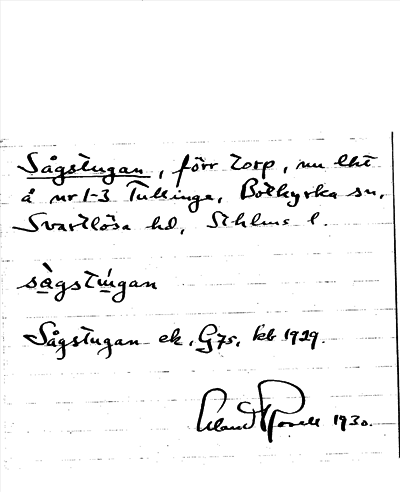 Sågstugan, förr torp, nu lht
å nr 1-3 Tullinge, Botkyrka sn,
Svartlösa hd, Sthlms l.
sågstugan
Sågstugan ek. G75, kb 1929.
1930.